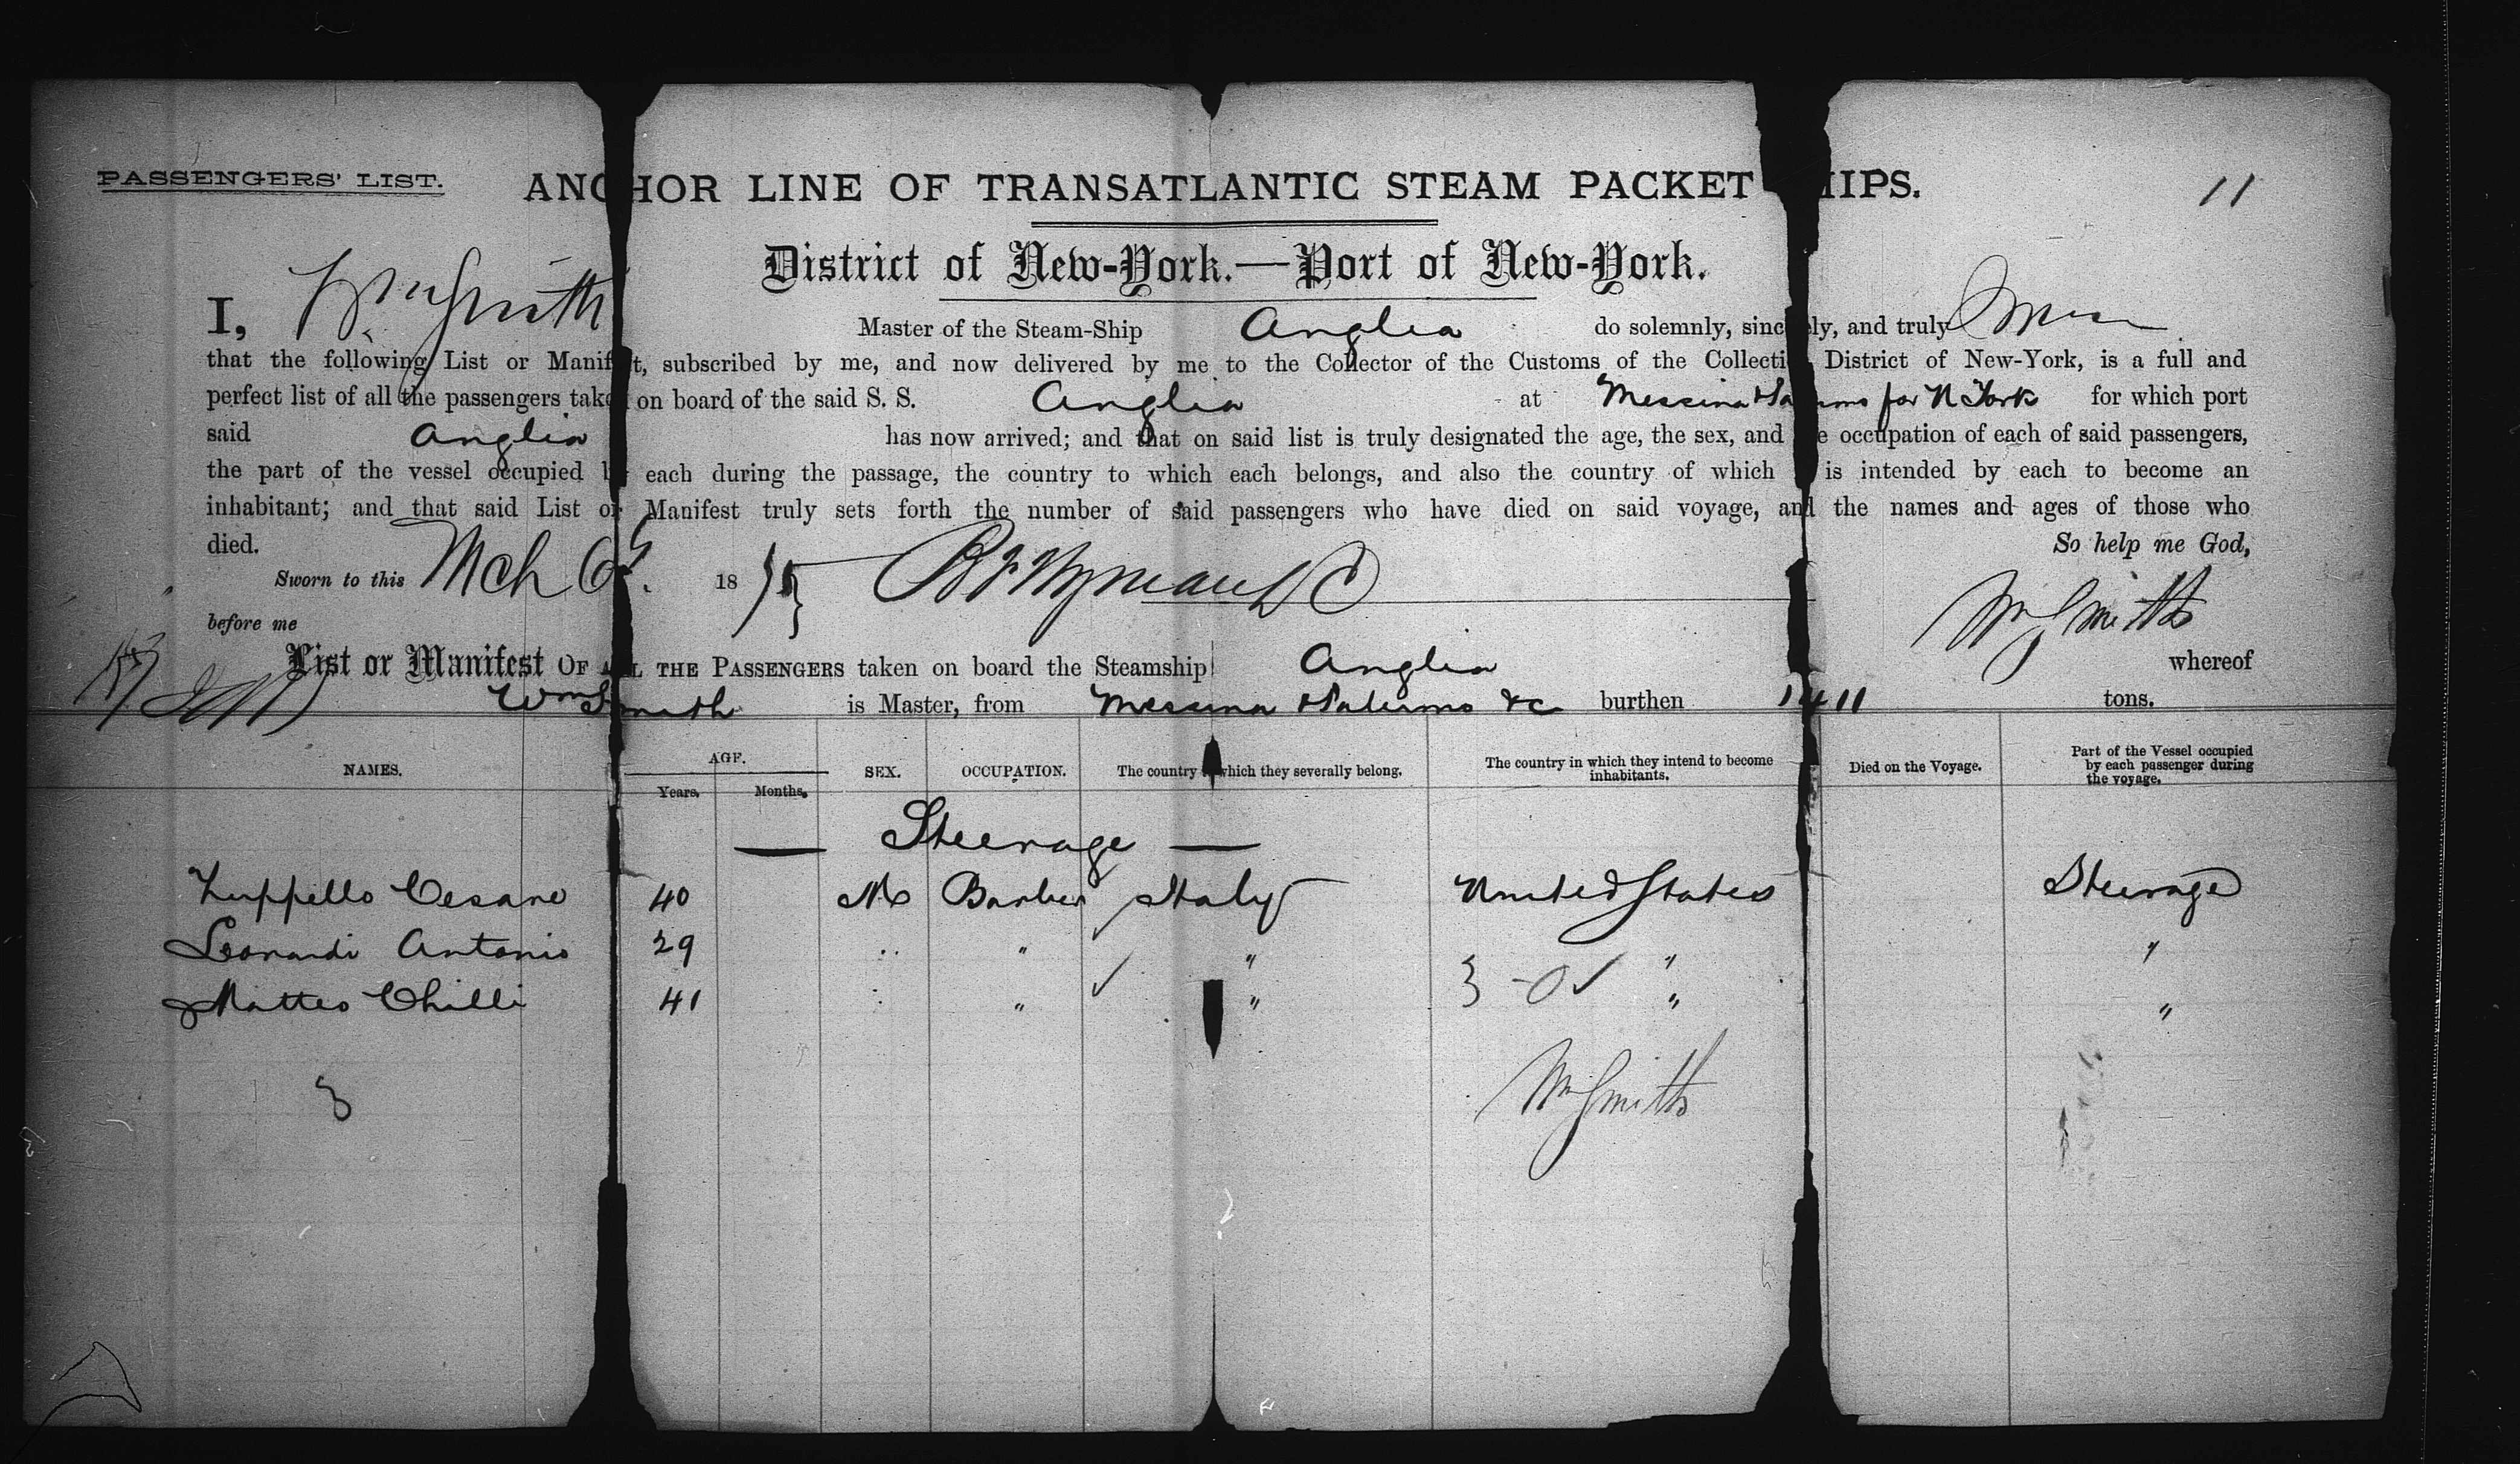 PASSENGERS' LIST.
ANCHOR LINE OF TRANSATLANTIC STEAM PACKET HIPS.
11
District of New-York.—Port of New-York.
I, Wm Smith Master of the Steam-Ship Anglia do solemnly, sincely, and truly
that the following List or Manifest, subscribed by me, and now delivered by me to the Collector of the Customs of the Collecti District of New-York, is a full and
perfect list of all the passengers take on board of the said S. S. Anglia at Messina & Palermo for N York for which port
said Anglia has now arrived; and that on said list is truly designated the age, the sex, and the occupation of each of said passengers,
the part of the vessel occupied by each during the passage, the country to which each belongs, and also the country of which is intended by each to become an
inhabitant; and that said List or Manifest truly sets forth the number of said passengers who have died on said voyage, and the names and ages of those who
died. So help me God,
Sworn to this Mch 6 1875
before me Wm Smith
List or Manifest OF ALL THE PASSENGERS taken on board the Steamship Anglia whereof
Wm Smith is Master, from Messina & Palermo &c burthen 1411 tons.
NAMES. AGE. Years. Months. SEX. OCCUPATION. The country to which they severally belong. The country in which they intend to become inhabitants. Died on the Voyage. Part of the Vessel occupied by each passenger during the voyage.
— Steerage —
Zuppello Cesare 40 M Barber Italy United States Steerage
Leonardi Antonio 29 " " " " "
Matteo Chilli 41 " " " " "
3
Wm Smith